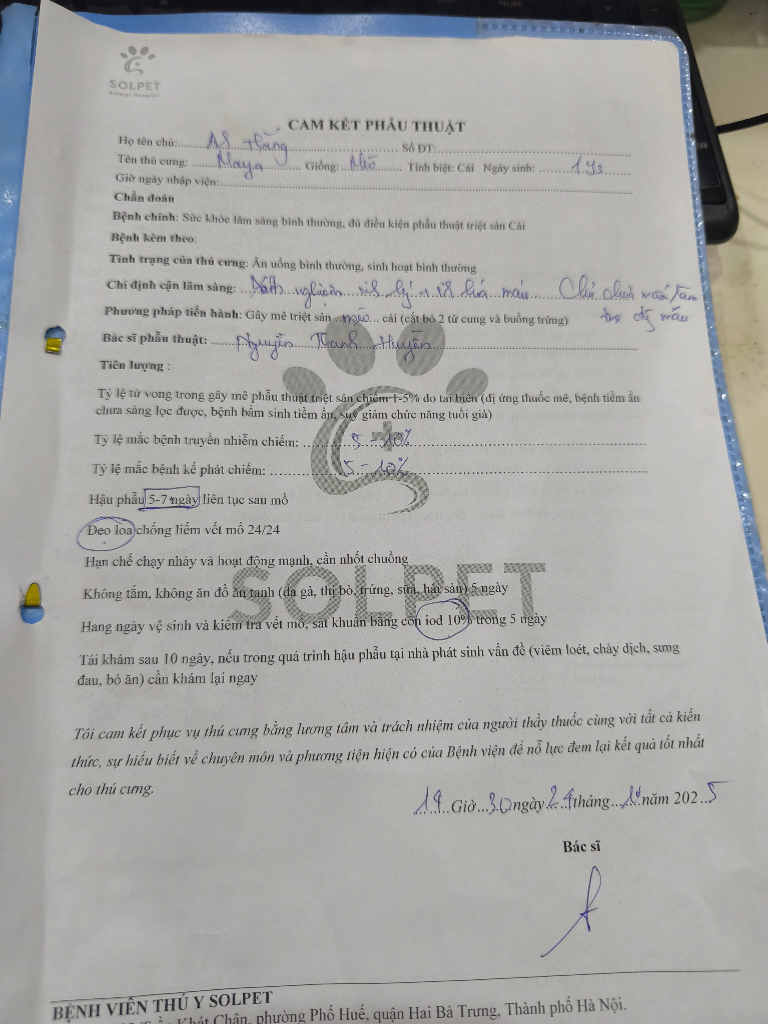 SOLPET
Animal Hospital
CAM KẾT PHẪU THUẬT
Họ tên chủ: Số ĐT:
Tên thú cưng: Maya Giống: Mèo Tính biệt: Cái Ngày sinh:
Giờ ngày nhập viện:
Chẩn đoán
Bệnh chính: Sức khỏe lâm sàng bình thường, đủ điều kiện phẫu thuật triệt sản Cái
Bệnh kèm theo:
Tình trạng của thú cưng: Ăn uống bình thường, sinh hoạt bình thường
Chỉ định cận lâm sàng: nghiệm máu Chủ chưa
Phương pháp tiến hành: Gây mê triệt sản mèo cái (cắt bỏ 2 tử cung và buồng trứng)
Bác sĩ phẫu thuật: Nguyễn Thanh Huyền
Tiên lượng :
Tỷ lệ tử vong trong gây mê phẫu thuật triệt sản chiếm 1-5% do tai biến (dị ứng thuốc mê, bệnh tiềm ẩn
chưa sàng lọc được, bệnh bẩm sinh tiềm ẩn, suy giảm chức năng tuổi già)
Tỷ lệ mắc bệnh truyền nhiễm chiếm: 5-10%
Tỷ lệ mắc bệnh kế phát chiếm: 5-10%
Hậu phẫu 5-7 ngày liên tục sau mổ
Đeo loa chống liếm vết mổ 24/24
Hạn chế chạy nhảy và hoạt động mạnh, cần nhốt chuồng
Không tắm, không ăn đồ ăn tanh (da gà, thị bò, trứng, sữa, hải sản) 5 ngày
Hang ngày vệ sinh và kiểm tra vết mổ, sát khuẩn bằng cồn iod 10% trong 5 ngày
Tái khám sau 10 ngày, nếu trong quá trình hậu phẫu tại nhà phát sinh vấn đề (viêm loét, chảy dịch, sưng
đau, bỏ ăn) cần khám lại ngay
SOLPET
Tôi cam kết phục vụ thú cưng bằng lương tâm và trách nhiệm của người thầy thuốc cùng với tất cả kiến
thức, sự hiểu biết về chuyên môn và phương tiện hiện có của Bệnh viện để nỗ lực đem lại kết quả tốt nhất
cho thú cưng.
Giờ 30 ngày tháng năm 2025
Bác sĩ
BỆNH VIÊN THÚ Y SOLPET
Khát Chân, phường Phố Huế, quận Hai Bà Trưng, Thành phố Hà Nội.